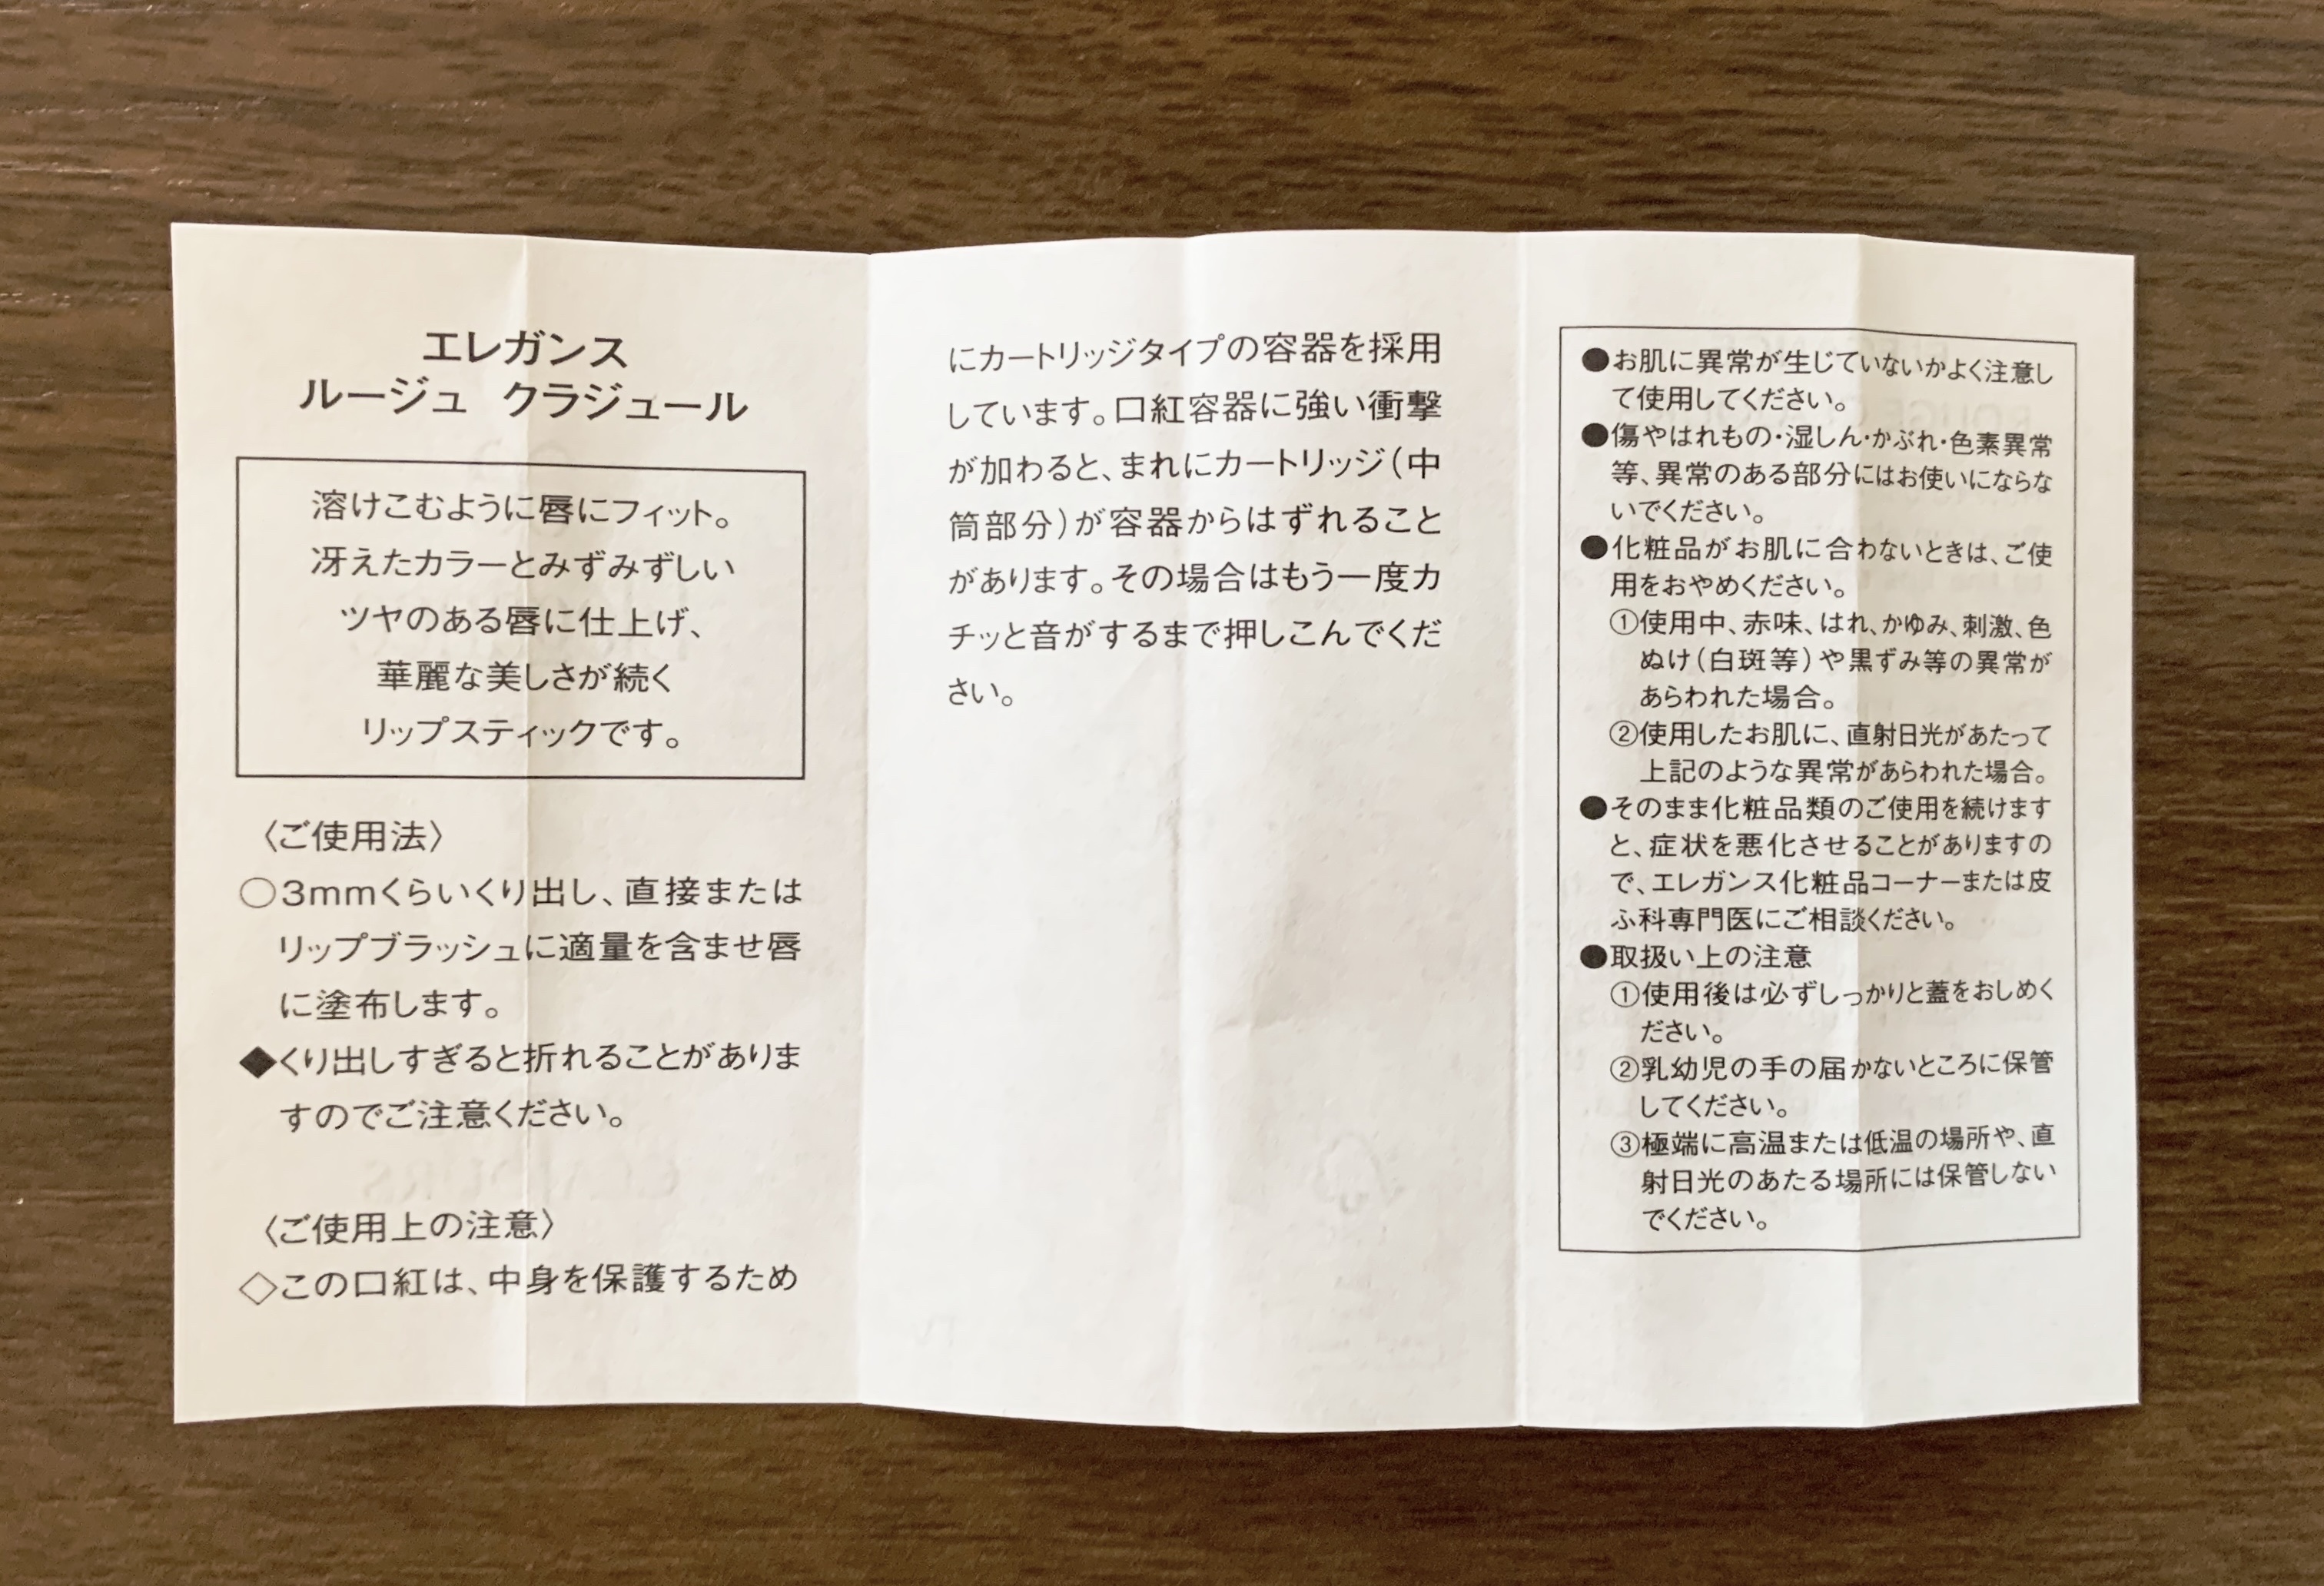 エレガンス
ルージュ クラジュール
溶けこむように唇にフィット。
冴えたカラーとみずみずしい
ツヤのある唇に仕上げ、
華麗な美しさが続く
リップスティックです。
〈ご使用法〉
○3mmくらいくり出し、直接または
リップブラッシュに適量を含ませ唇
に塗布します。
◆くり出しすぎると折れることがありま
すのでご注意ください。
〈ご使用上の注意〉
◇この口紅は、中身を保護するため
にカートリッジタイプの容器を採用
しています。口紅容器に強い衝撃
が加わると、まれにカートリッジ(中
筒部分)が容器からはずれること
があります。その場合はもう一度カ
チッと音がするまで押しこんでくだ
さい。
●お肌に異常が生じていないかよく注意し
て使用してください。
●傷やはれもの・湿しん・かぶれ・色素異常
等、異常のある部分にはお使いにならな
いでください。
●化粧品がお肌に合わないときは、ご使
用をおやめください。
①使用中、赤味、はれ、かゆみ、刺激、色
ぬけ(白斑等)や黒ずみ等の異常が
あらわれた場合。
②使用したお肌に、直射日光があたって
上記のような異常があらわれた場合。
●そのまま化粧品類のご使用を続けます
と、症状を悪化させることがありますの
で、エレガンス化粧品コーナーまたは皮
ふ科専門医にご相談ください。
●取扱い上の注意
①使用後は必ずしっかりと蓋をおしめく
ださい。
②乳幼児の手の届かないところに保管
してください。
③極端に高温または低温の場所や、直
射日光のあたる場所には保管しない
でください。